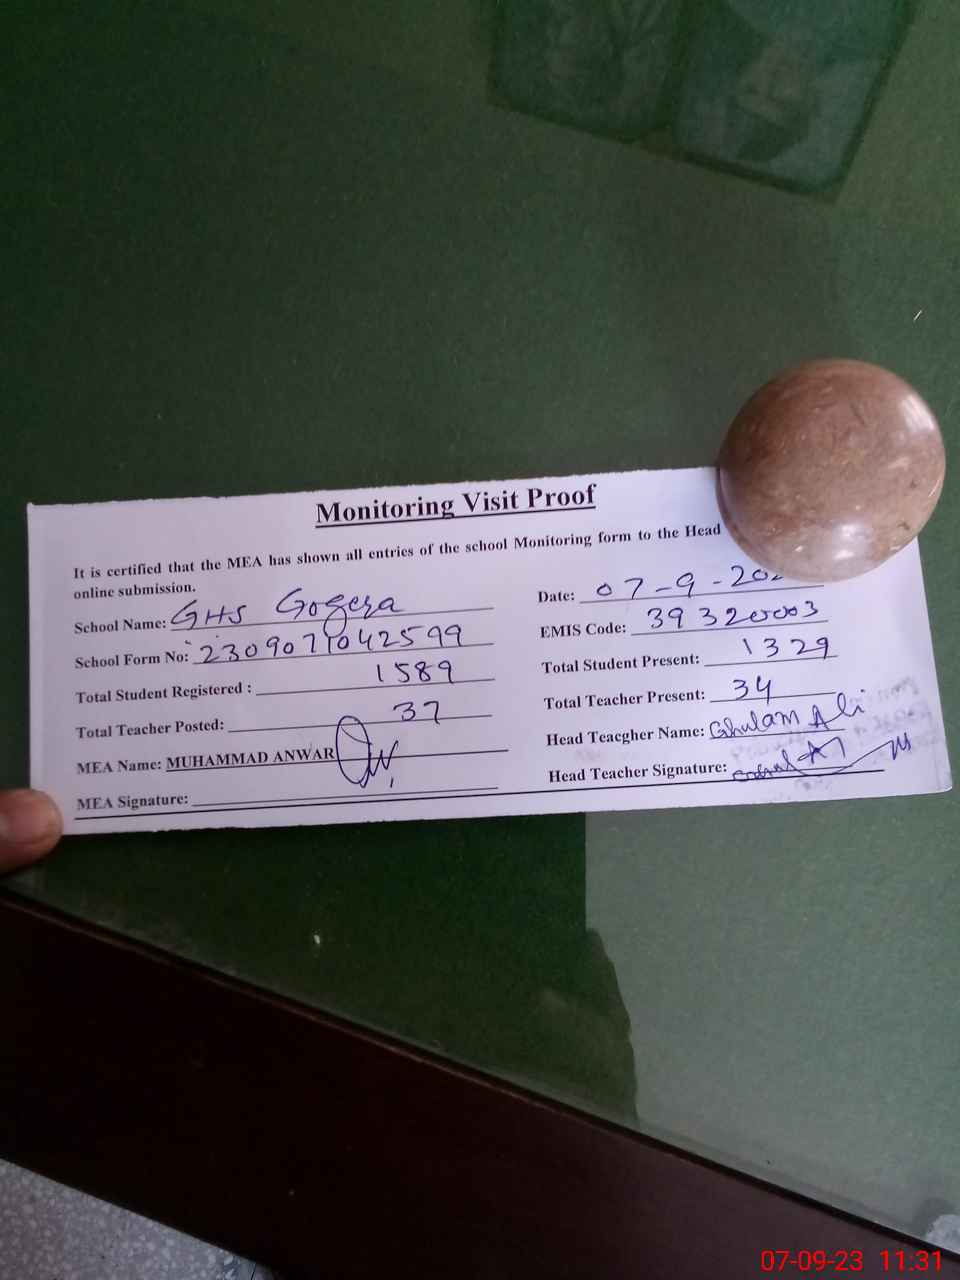 Monitoring Visit Proof
It is certified that the MEA has shown all entries of the school Monitoring form to the Head
online submission.
School Name: GHS Gogera
Date: 07-9-202
School Form No: 2309071042599
EMIS Code: 39320003
Total Student Registered : 1589
Total Student Present: 1329
Total Teacher Posted: 37
Total Teacher Present: 34
MEA Name: MUHAMMAD ANWAR
Head Teacgher Name: Ghulam Ali
MEA Signature:
Head Teacher Signature:
07-09-23 11:31